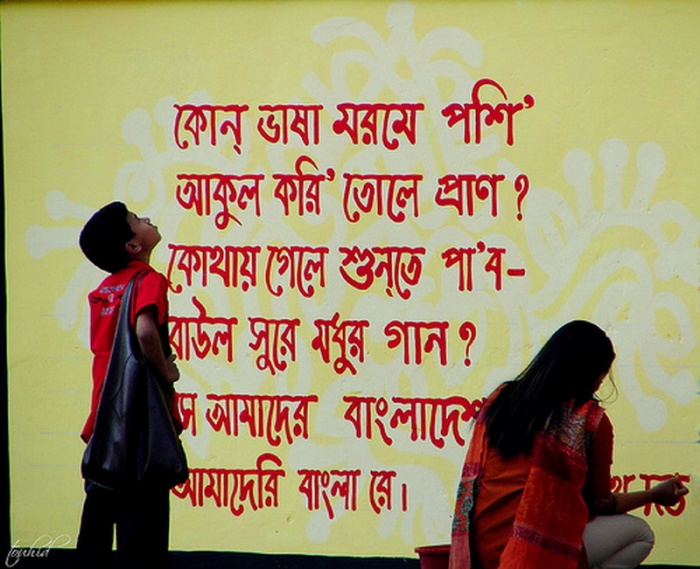 কোন্ ভাষা মরমে পশি’
আকুল করি’ তোলে প্রাণ ?
কোথায় গেলে শুন্‌তে পা’ব–
বাউল সুরে মধুর গান ?
আমাদের বাংলাদেশ
আমাদেরি বাংলা রে।
touhid